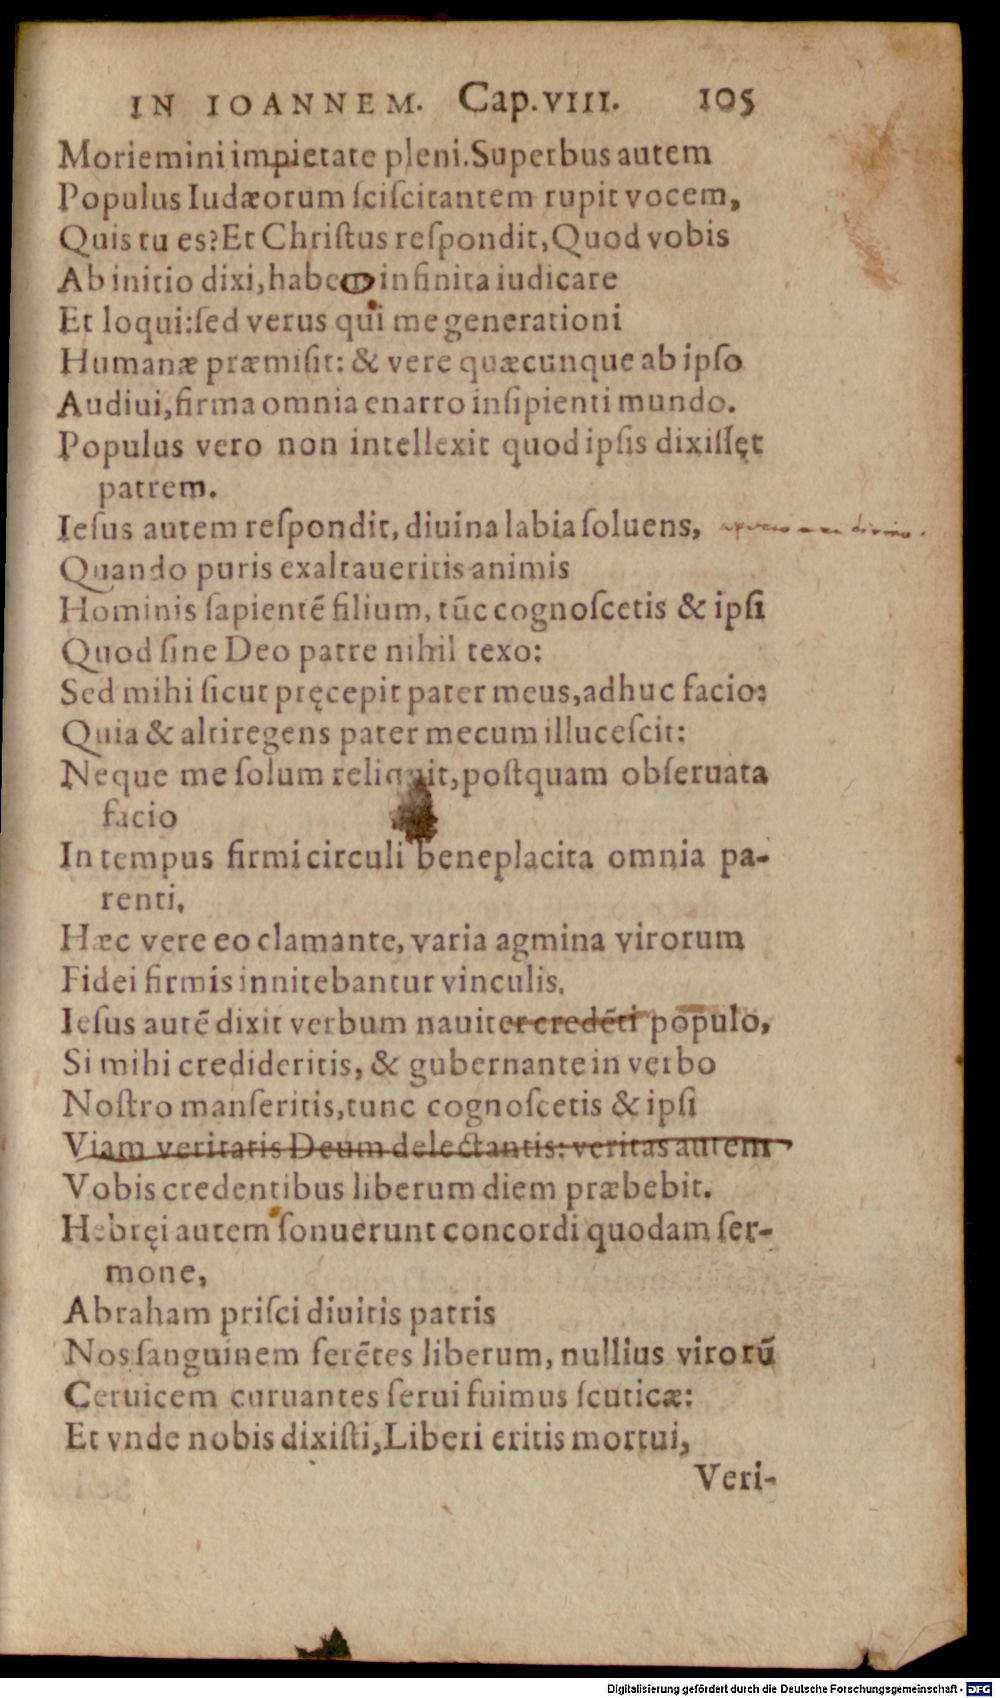 IN IOANNEM. Cap. VIII. 105
Moriemini impietate pleni. Superbus autem
Populus Iudæorum ſciſcitantem rupit vocem,
Quis tu es? Et Chriſtus reſpondit, Quod vobis
Ab initio dixi, habeo infinita iudicare
Et loqui: ſed verus qui me generationi
Humanæ præmiſit: & vere quæcunque ab ipſo
Audiui, firma omnia enarro inſipienti mundo.
Populus vero non intellexit quod ipſis dixiſſęt
patrem.
Ieſus autem reſpondit, diuina labia ſoluens,
Quando puris exaltaueritis animis
Hominis ſapientē filium, tūc cognoſcetis & ipſi
Quod ſine Deo patre nihil texo:
Sed mihi ſicut pręcepit pater meus, adhuc facio:
Quia & altiregens pater mecum illuceſcit:
Neque me ſolum reliquit, poſtquam obſeruata
facio
In tempus firmi circuli beneplacita omnia pa-
renti.
Hæc vere eo clamante, varia agmina virorum
Fidei firmis innitebantur vinculis.
Ieſus autē dixit verbum nauiter credēti populo,
Si mihi credideritis, & gubernante in verbo
Noſtro manſeritis, tunc cognoſcetis & ipſi
Viam veritatis Deum delectantis: veritas autem
Vobis credentibus liberum diem præbebit.
Hebręi autem ſonuerunt concordi quodam ſer-
mone,
Abraham priſci diuitis patris
Nos ſanguinem ferētes liberum, nullius virorū
Ceruicem curuantes ſerui fuimus ſcuticæ:
Et vnde nobis dixiſti, Liberi eritis mortui,
Veri-
Digitalisierung gefördert durch die Deutsche Forschungsgemeinschaft - DFG